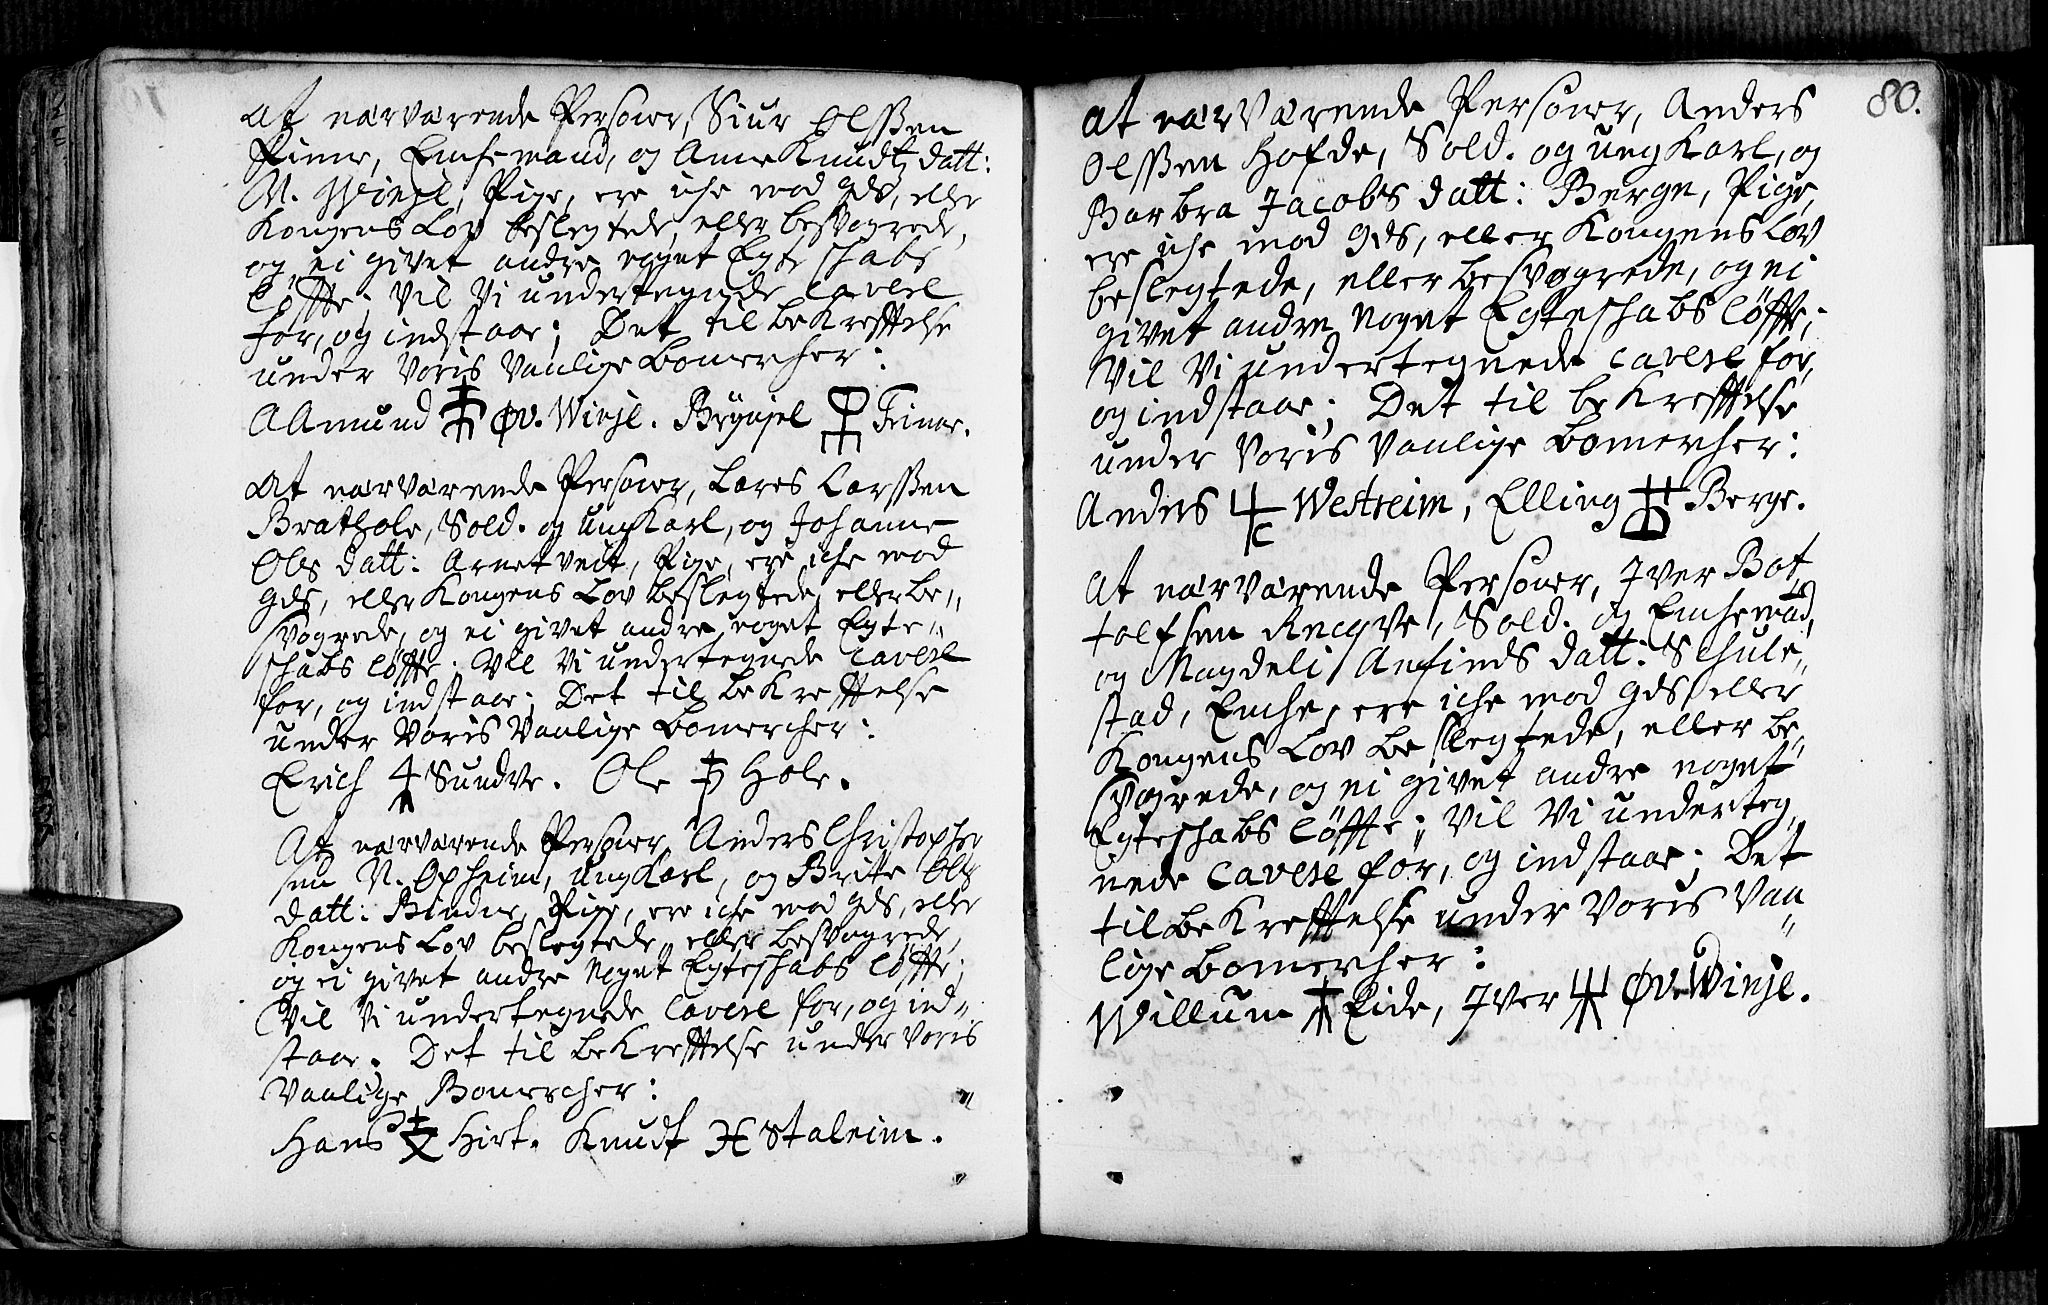 At nærværende Persouer, Siur Olssen
Finne, Enchemand, og Anne Knudtz datt:
N. Winjl, Pige, ere iche mod Gds, eller
Kongens Lov beslegtede, eller besvogrede,
og ei givet andre noget Egte schabs
Løffte; Vil Vi undertegnede Cavere
for, og indstaae; Det til bekrefftelse
under Voris Vanlige Bomercher:
AAmund Øv. Winjl. Brÿnjel Finne.
At nærværende Persouer, Lares Larssen
Brathole, Sold. og ungKarl, og Johanne
Oles datt: Arnetveit, Pige, ere iche mod
Gds, eller Kongens Lov beslegtede, eller be„
svogrede, og ei givet andre noget Egte„
schabs Løffte; Vil Vi undertegnede Cavere
for, og indstaae; Det til bekrefftelse
under Voris Vanlige Bomercher:
Erich Sundve. Ole Hole.
At nærværende Persouer, Anders Christopher
sen N. Opheim, ungKarl, og Britte Oles
datt: Binde, Pige, ere iche mod Gds, eller
Kongens Lov beslegtede, eller besvogrede,
og ei givet andre noget Egteschabs Løffte;
Vil Vi undertegnede Cavere for, og ind„
staae. Det til bekrefftelse under Voris
Vanlige Bomercher:
Hans Hirt. Knudt Staleim.
80.
At nærværende Persouer, Anders
Olssen Hofde, Sold. og ungKarl, og
Barbra Jacobs datt: Berge, Pige,
ere iche mod Gds, eller Kongens Lov
beslegtede, eller besvogrede, og ei
givet andre noget Egteschabs Løffte;
Vil Vi undertegnede Cavere for,
og indstaae; Det til bekrefftelse
under Voris Vanlige Bomercher:
Anders Westreim, Elling Berge.
At nærværende Persouer, Iver Bot„
tolfsen Recqve, Sold. og Enchemād,
og Magdeli Anfinds datt: Schule„
stad, Enche, ere iche mod Gds, eller
Kongens Lov beslegtede, eller be„
svogrede, og ei givet andre noget
Egteschabs Løffte; Vil Vi underteg„
nede Cavere for, og indstaae; Det
til bekrefftelse under Voris Van„
lige Bomercher:
Willum Eide, Iver Øv. Winjl.